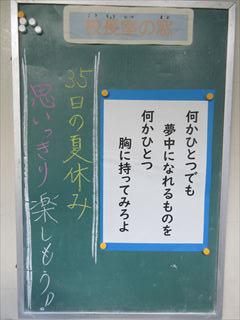 校長室の窓
何かひとつでも
夢中になれるものを
何かひとつ
胸に持ってみろよ
35日の夏休み
思いっきり楽しもう!